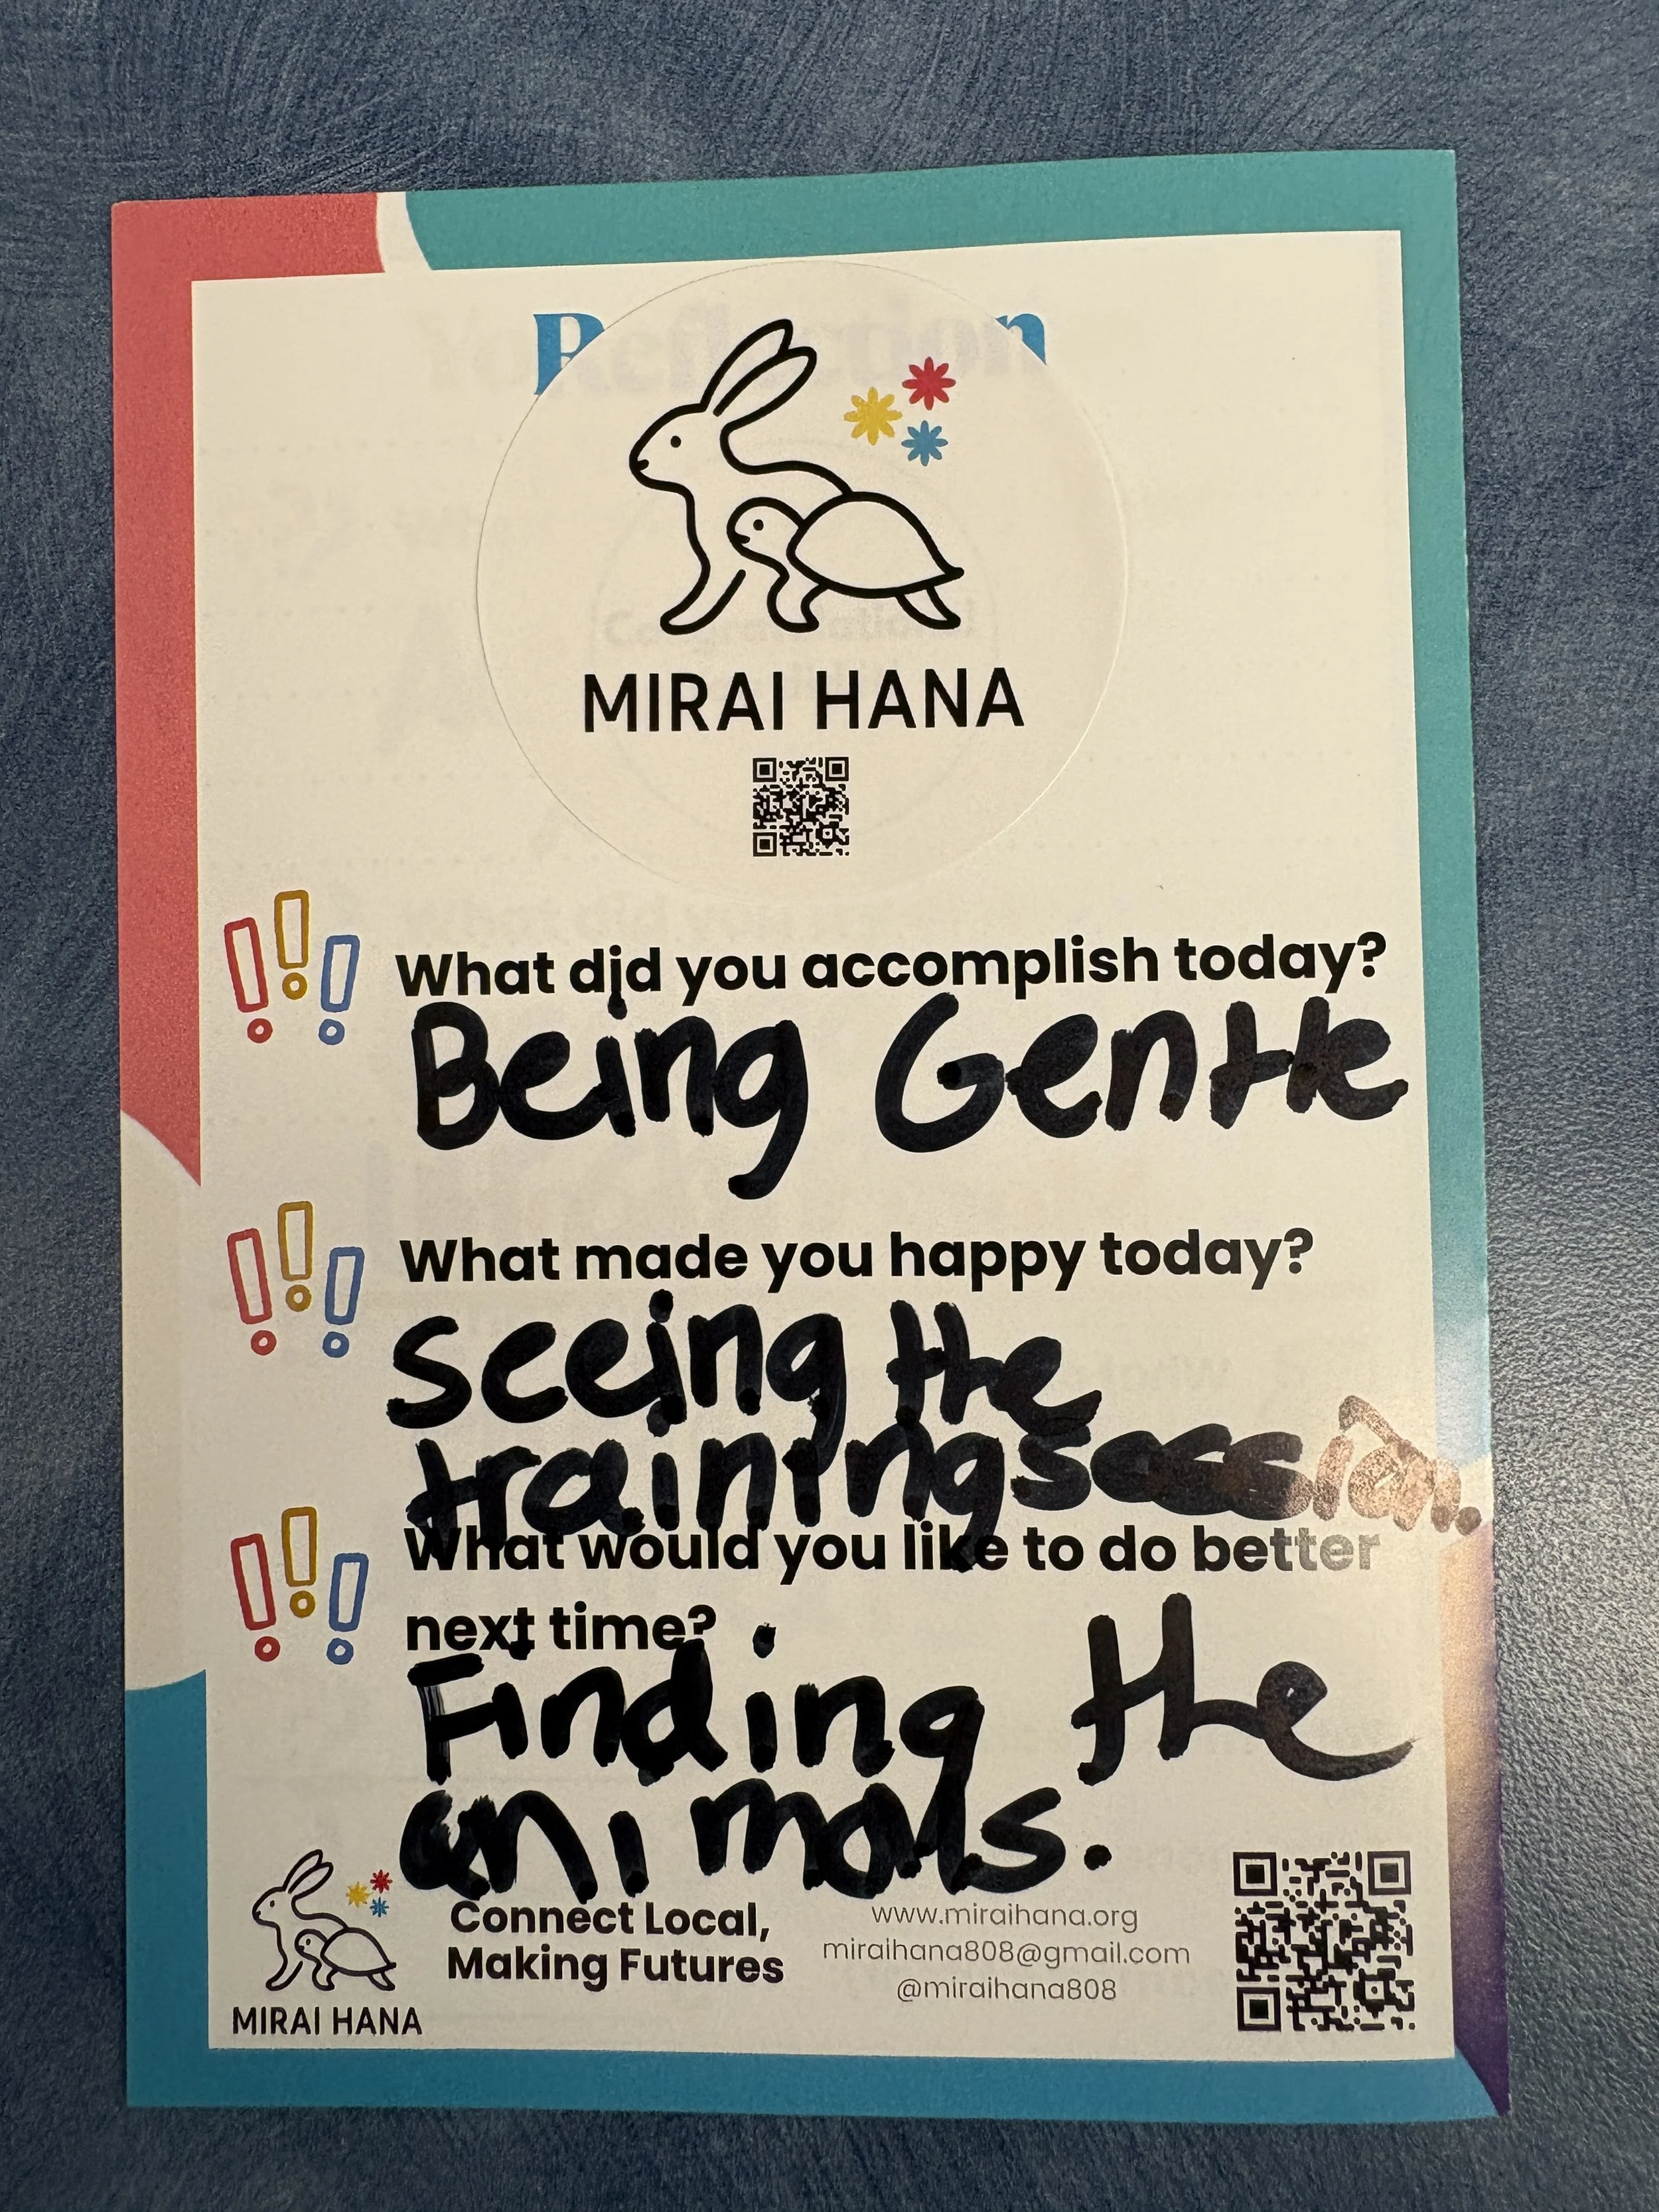 Reflection
MIRAI HANA
What did you accomplish today?
Being Gentle
What made you happy today?
Seeing the
training session.
What would you like to do better
next time?
Finding the
animals.
MIRAI HANA
Connect Local,
Making Futures
www.miraihana.org
miraihana808@gmail.com
@miraihana808